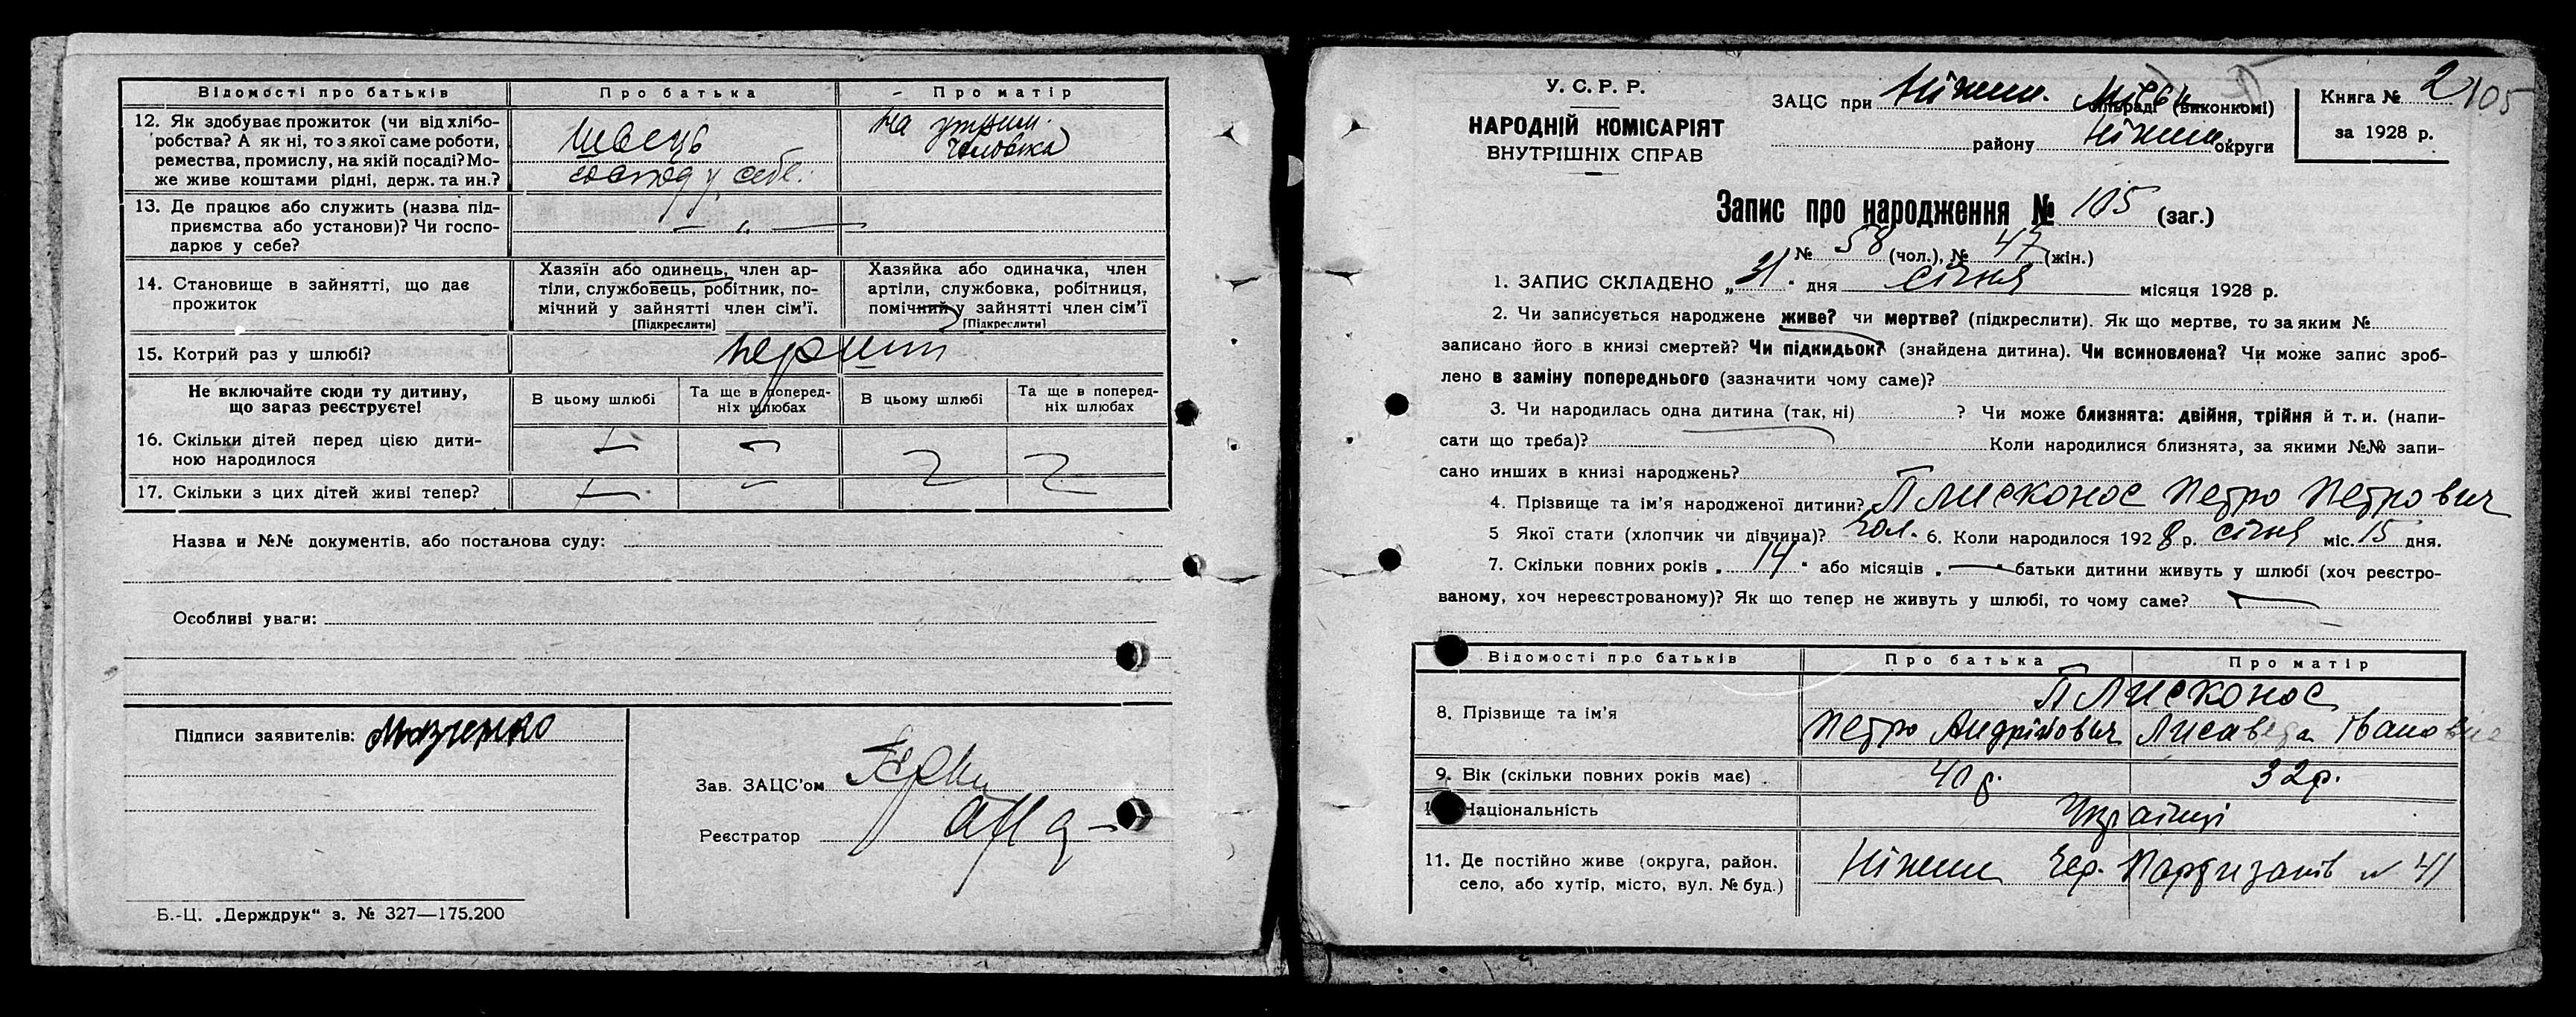 Відомості про батьків
Про батька
Про матір
12. Як здобуває прожиток (чи від хлібо-
робства? А як ні, то з якої саме роботи,
ремества, промислу, на якій посаді? Мо-
же живе коштами рідні, держ. та ин.?
Швець
господ у себе.
на утрим.
чоловіка
13. Де працює або служить (назва під-
приємства або установи)? Чи госпо-
дарює у себе?
— „ —
14. Становище в зайнятті, що дає
прожиток
Хазяїн або одинець, член ар-
тіли, службовець, робітник, по-
мічний у зайнятті член сім'ї.
[Підкреслити]
Хазяйка або одиначка, член
артіли, службовка, робітниця,
помічний у зайнятті член сім'ї
[Підкреслити]
15. Котрий раз у шлюбі?
перший
Не включайте сюди ту дитину,
що загаз реєструєте!
В цьому шлюбі
Та ще в поперед-
ніх шлюбах
В цьому шлюбі
Та ще в поперед-
ніх шлюбах
16. Скільки дітей перед цією дити-
ною народилося
17. Скільки з цих дітей живі тепер?
Назва и №№ документів, або постанова суду:
Особливі уваги:
Підписи заявителів:
Зав. ЗАЦС'ом
Реєстратор
Б.-Ц. „Держдрук“ з. № 327—175.200
У. С. Р. Р.
НАРОДНІЙ КОМІСАРІЯТ
ВНУТРІШНІХ СПРАВ
ЗАЦС при Ніжин. сільраді (виконкомі)
району Ніжин. округи
Книга № 2
за 1928 р.
105
Запис про народження № 105 (заг.)
№ 58 (чол.), № 47 (жін.)
1. ЗАПИС СКЛАДЕНО „31“ дня січня місяця 1928 р.
2. Чи записується народжене живе? чи мертве? (підкреслити). Як що мертве, то за яким №
записано його в книзі смертей? Чи підкидьок? (знайдена дитина). Чи всиновлена? Чи може запис зроб-
лено в заміну попереднього (зазначити чому саме)?
3. Чи народилась одна дитина (так, ні) ? Чи може близнята: двійня, трійня й т. и. (напи-
сати що треба)? Коли народилися близнята, за якими №№ запи-
сано инших в книзі народжень?
4. Прізвище та ім'я народженої дитини? Плисконос Петро Петрович
5 Якої стати (хлопчик чи дівчина)? Чол. 6. Коли народилося 1928 р. січня міс. 15 дня.
7. Скільки повних років „14“ або місяців „—“ батьки дитини живуть у шлюбі (хоч реєстро-
ваному, хоч нереєстрованому)? Як що тепер не живуть у шлюбі, то чому саме? —
Відомості про батьків
Про батька
Про матір
8. Прізвище та ім'я
Плисконос
Петро Андрійович
Лисаведа Івановна
9. Вік (скільки повних років має)
40 р.
32 р.
Національність
Українці
11. Де постійно живе (округа, район.
село, або хутір, місто, вул. № буд.)
Ніжин Чер. Партизанів № 41